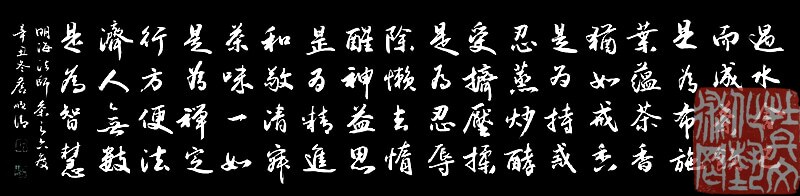 遇水
而成
是為布施
葉蘊茶香
猶如戒香
是為持戒
忍蒸炒酵
受擠壓揉
是為忍辱
除懶去惰
醒神益思
是为精進
和敬清寂
茶味一如
是為禪定
行方便法
濟人無數
是為智慧
明海法師茶之六度
辛丑冬